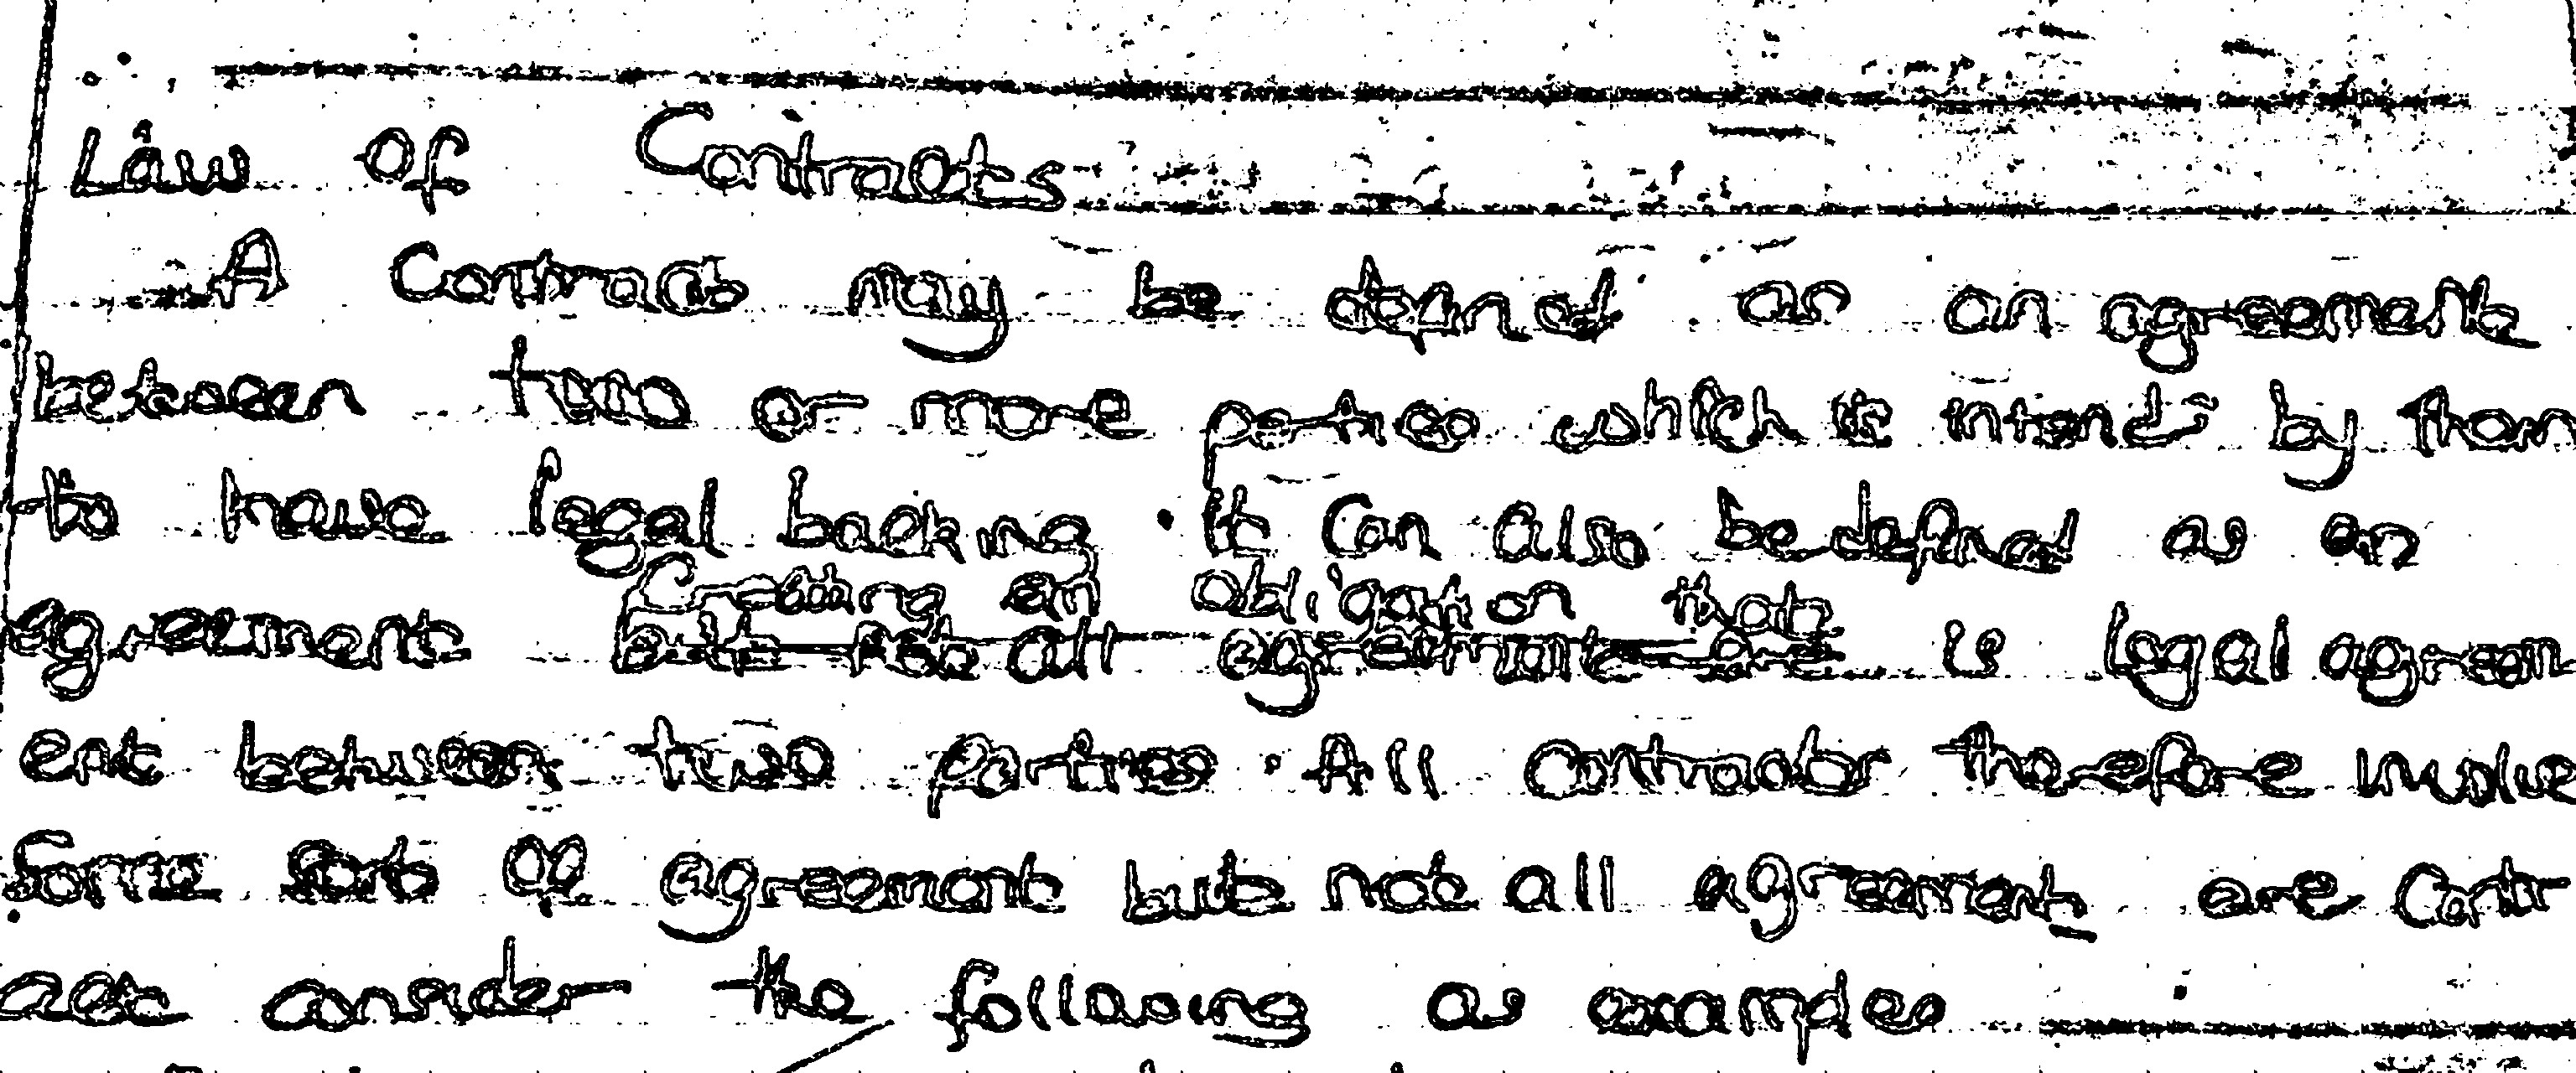 Law of Contracts
A Contract may be defined as an agreement
between two or more parties which is intend by them
to have legal backing. it can also be defined as an
creating an obligation that
agreement but not all agreements are is legal agreem
ent between two parties. All contracts therefore involve
some sort of agreement but not all agreements are Contr
act consider the following as examples